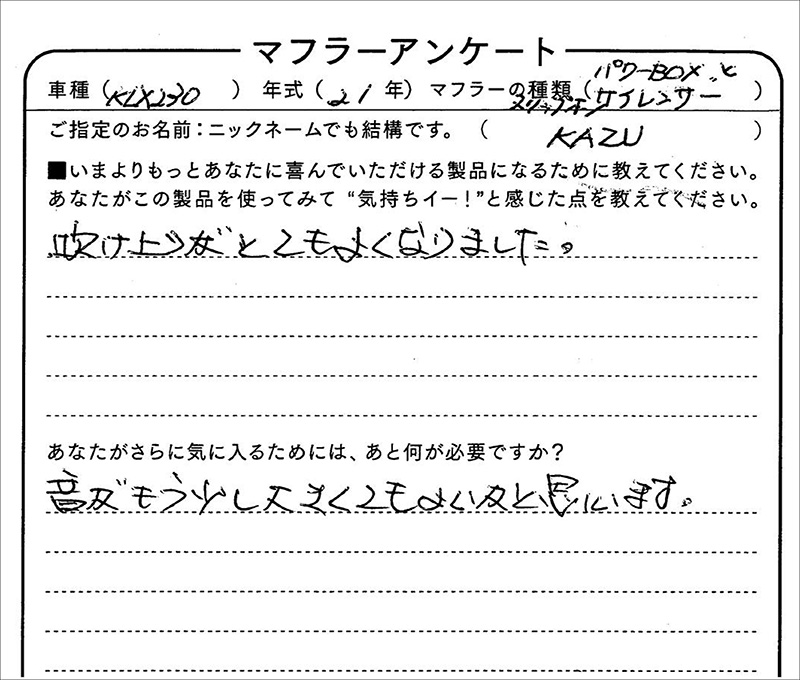 マフラーアンケート
車種（KLX230）年式（21年）マフラーの種類（パワーBOXと スリップオンサイレンサー）
ご指定のお名前：ニックネームでも結構です。（KAZU）
■いまよりもっとあなたに喜んでいただける製品になるために教えてください。
あなたがこの製品を使ってみて“気持ちイー！”と感じた点を教えてください。
吹け上りがとてもよくなりました。
あなたがさらに気に入るためには、あと何が必要ですか？
音がもう少し大きくてもよいかと思います。